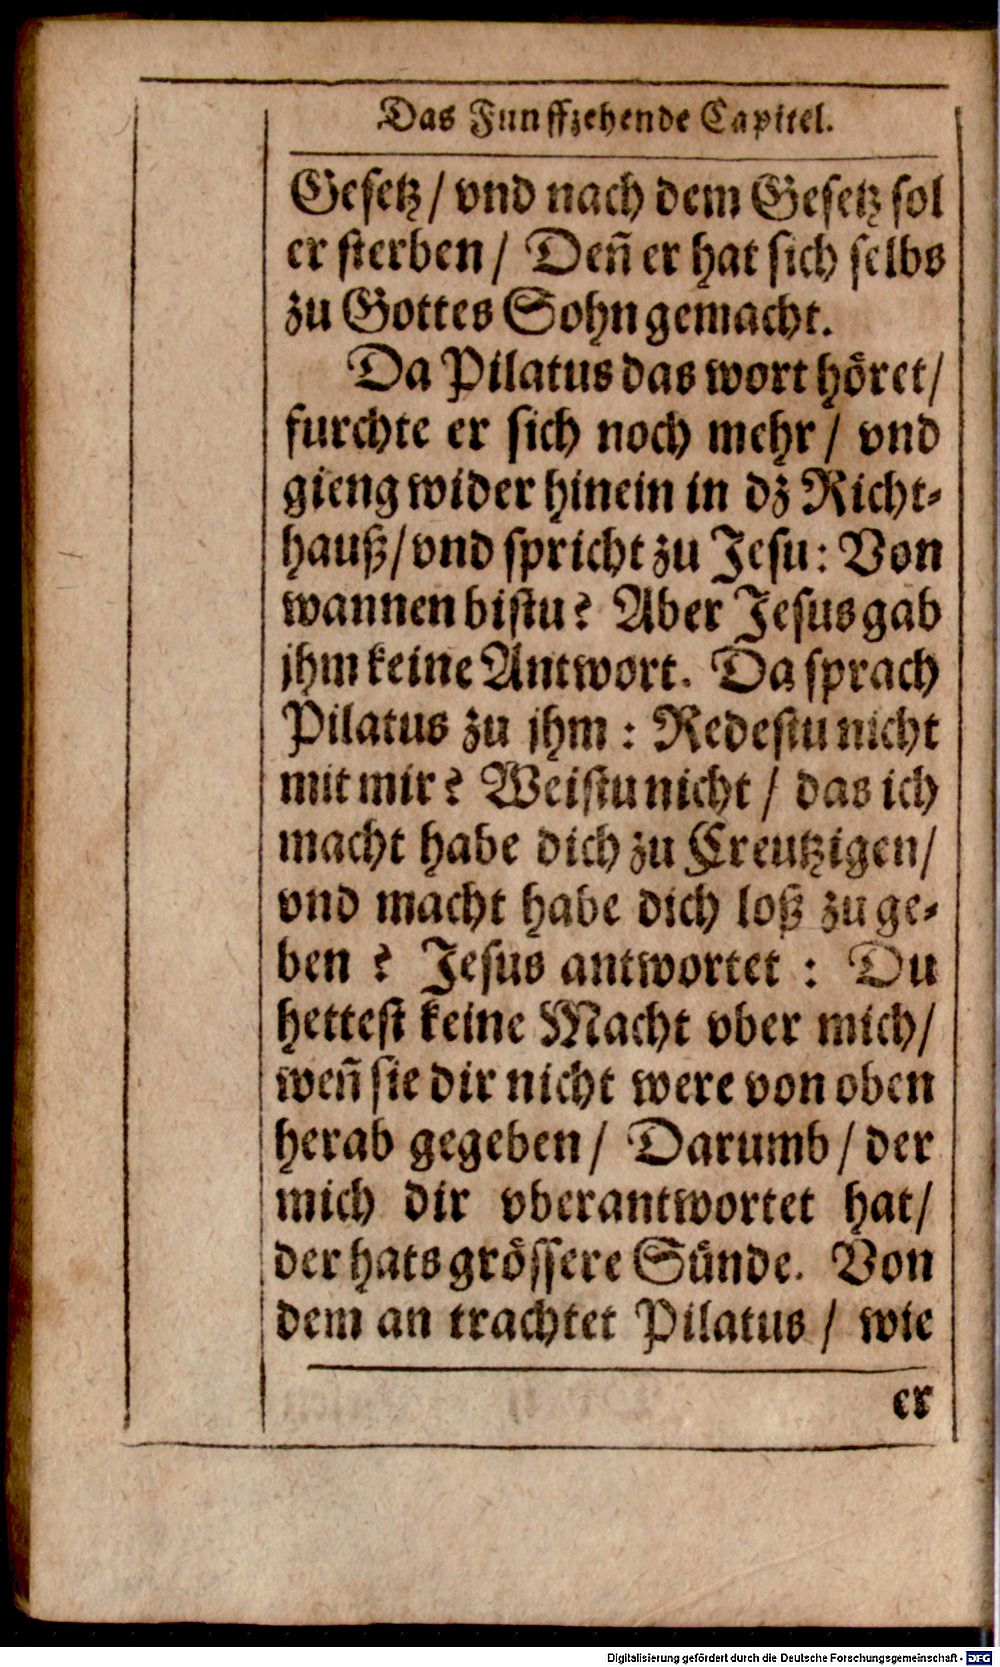 Das Funffzehende Capitel.
Gesetz / vnd nach dem Gesetz sol
er sterben / Deñ er hat sich selbs
zu Gottes Sohn gemacht.
Da Pilatus das wort höret /
furchte er sich noch mehr / vnd
gieng wider hinein in dz Richt-
hauß / vnd spricht zu Jesu: Von
wannen bistu? Aber Jesus gab
jhm keine Antwort. Da sprach
Pilatus zu jhm : Redestu nicht
mit mir? Weistu nicht / das ich
macht habe dich zu Creutzigen /
vnd macht habe dich loß zu ge-
ben ? Jesus antwortet : Du
hettest keine Macht vber mich /
weñ sie dir nicht were von oben
herab gegeben / Darumb / der
mich dir vberantwortet hat /
der hats grössere Sünde. Von
dem an trachtet Pilatus / wie
er
Digitalisierung gefördert durch die Deutsche Forschungsgemeinschaft - DFG